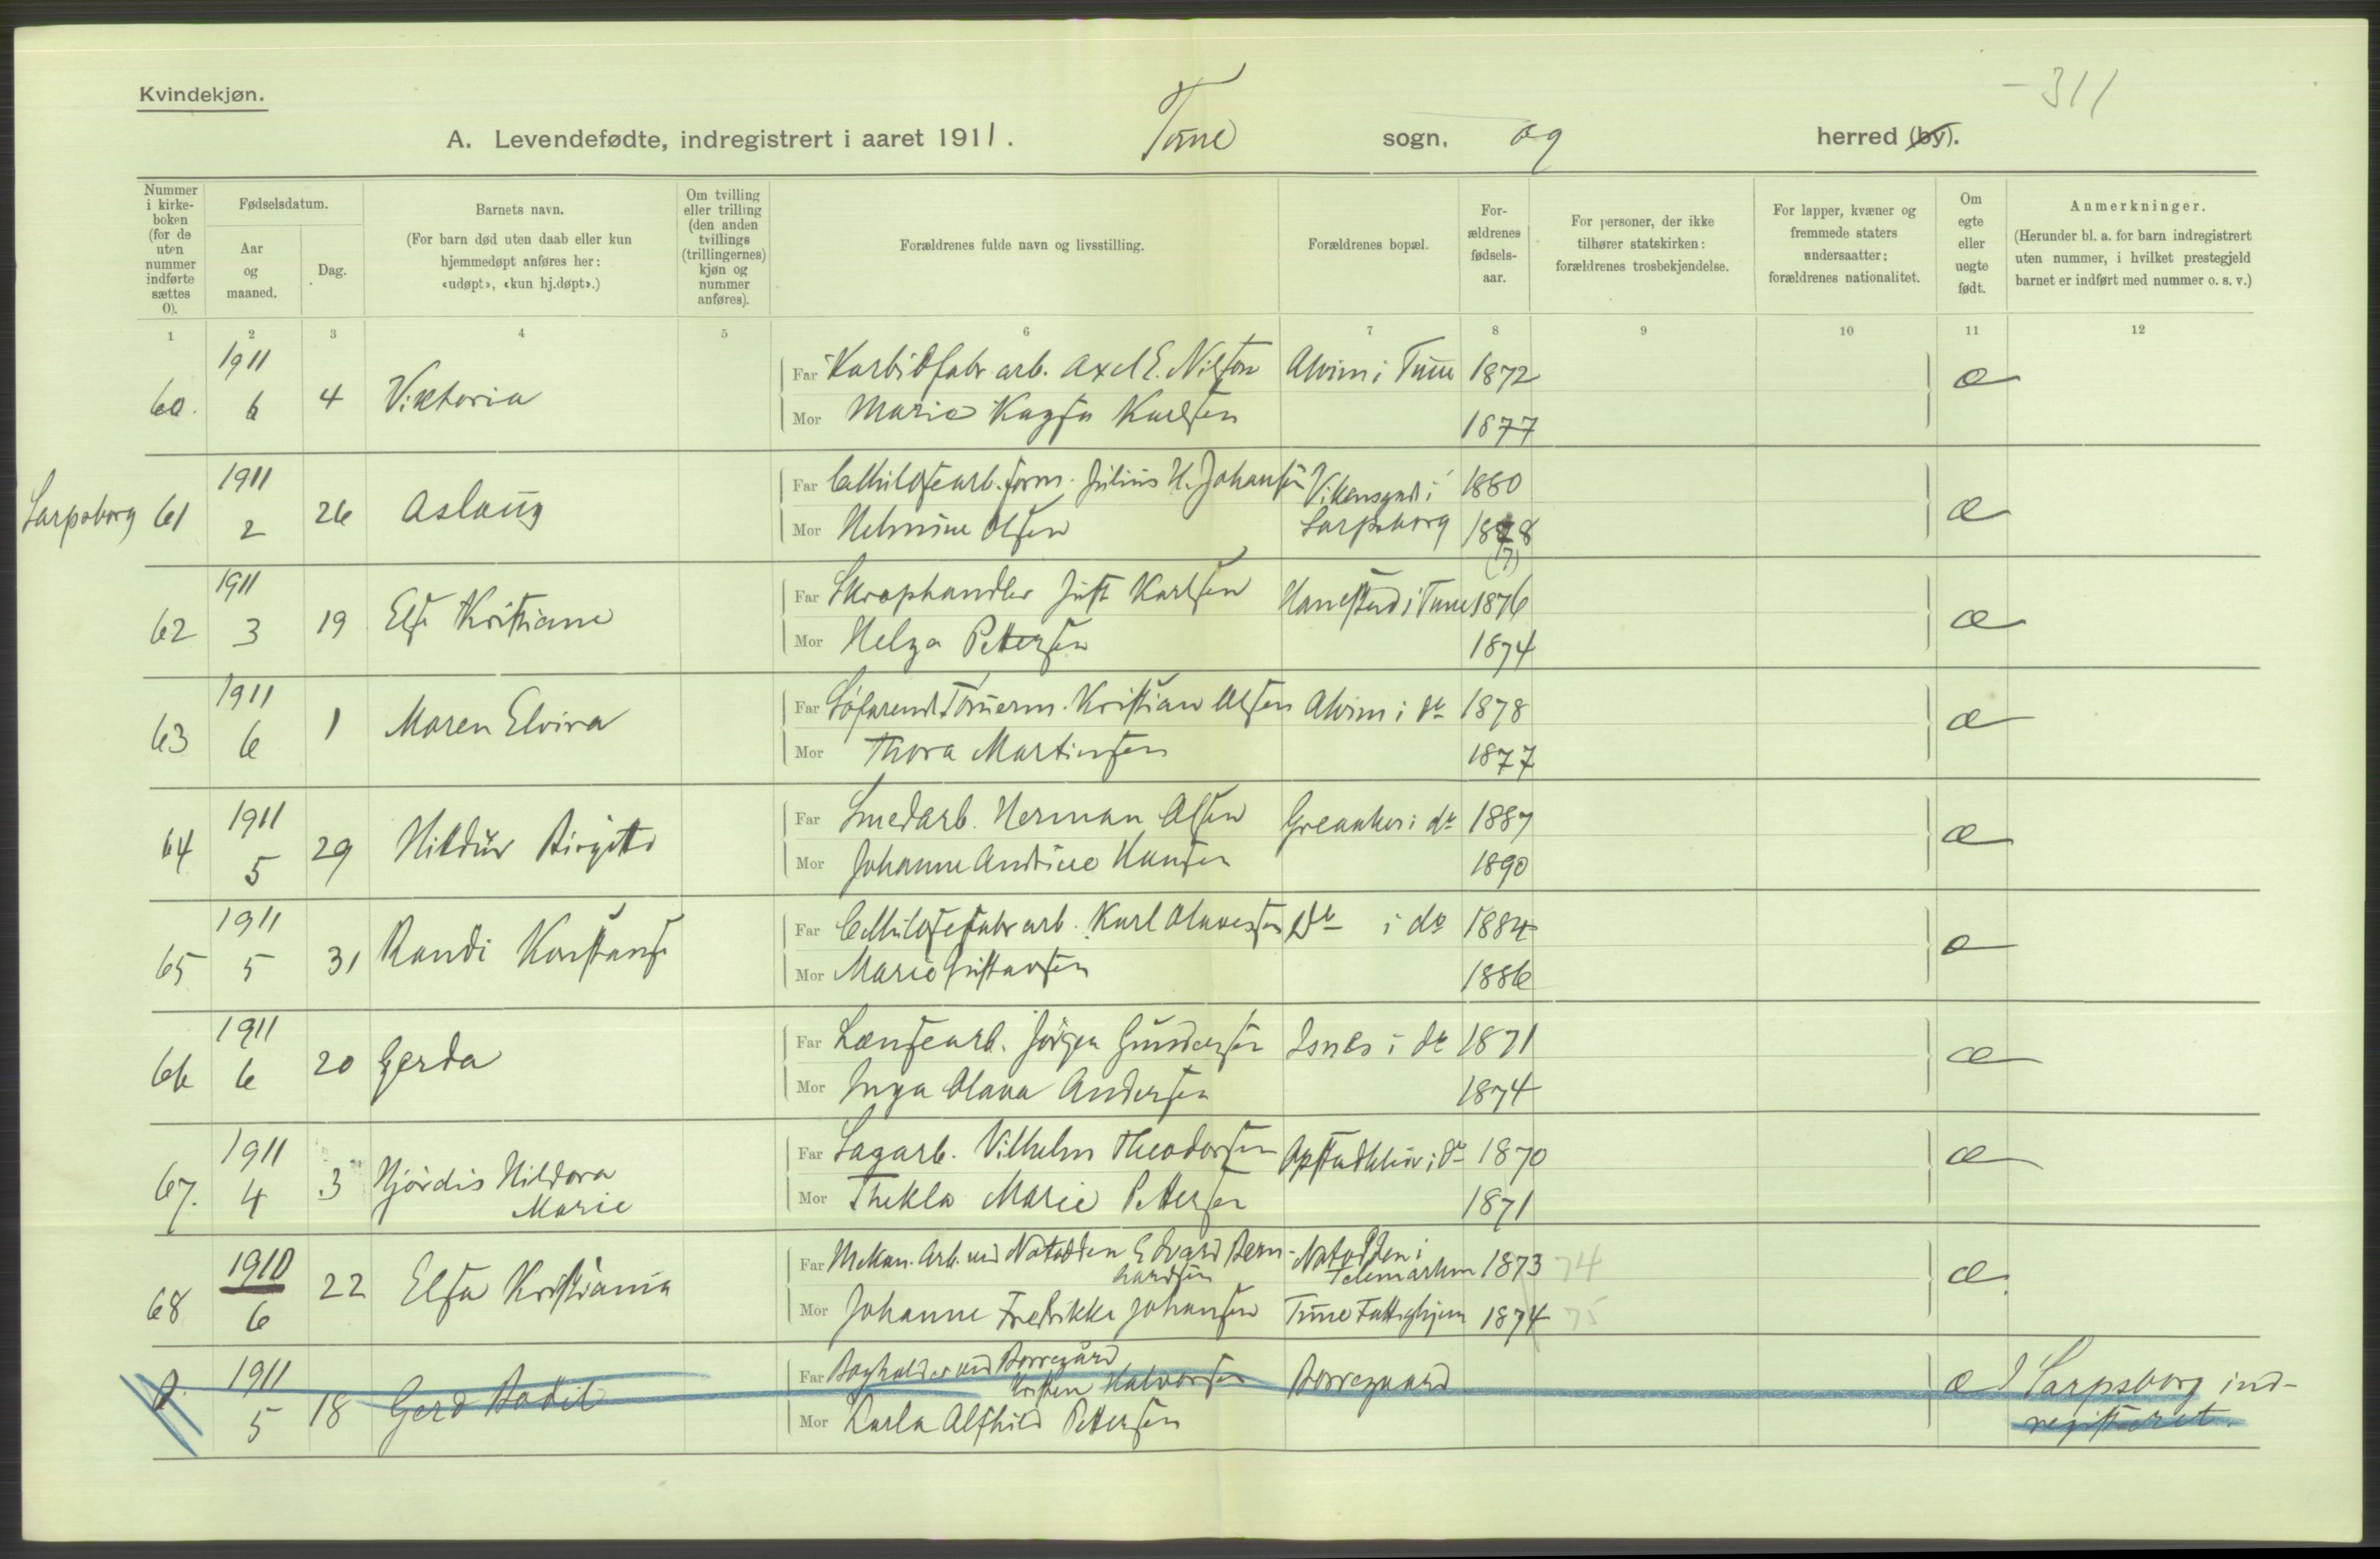 Kvindekjøn.
-311
A. Levendefødte, indregistrert i aaret 1911. Tune sogn, og herred (by).
Nummer i kirkeboken (for de uten nummer indførte sættes 0).
Fødselsdatum.
Aar og maaned.
Dag.
Barnets navn.
(For barn død uten daab eller kun hjemmedøpt anføres her: «udøpt», «kun hj.døpt».)
Om tvilling eller trilling (den anden tvillings (trillingernes) kjøn og nummer anføres).
Forældrenes fulde navn og livsstilling.
Forældrenes bopæl.
For-ældrenes fødsels-aar.
For personer, der ikke tilhører statskirken: forældrenes trosbekjendelse.
For lapper, kvæner og fremmede staters undersaatter: forældrenes nationalitet.
Om egte eller uegte født.
Anmerkninger.
(Herunder bl. a. for barn indregistrert uten nummer, i hvilket prestegjeld barnet er indført med nummer o. s. v.)
1 2 3 4 5 6 7 8 9 10 11 12
60. 1911 6 4 Viktoria
Far Karbidfabr. arb. Axel E. Nilson Alvim i Tune 1872 æ
Mor Marie Kagsa Karlsen 1877
Sarpsborg 61 1911 2 26 Aslaug
Far Cellulosearb. form. Julius H. Johansen Vikensgad i Sarpsborg 1880 æ
Mor Helmine Olsen 1878 (7)
62 1911 3 19 Else Kristiane
Far Skraphandler Just Karlsen Hanestad i Tune 1876 æ
Mor Helga Pettersen 1874
63 1911 6 1 Maren Elvira
Far Søfarende Tømerm. Kristian Olsen Alvim i do 1878 æ
Mor Thora Martinsen 1877
64 1911 5 29 Hildur Birgitte
Far Smedarb. Herman Olsen Greaaker i do 1887 æ
Mor Johanne Andrine Hansen 1890
65 1911 5 31 Randi Konstanse
Far Cellulosefabr arb. Karl Olavesen Do i do 1884 æ
Mor Marie Gustavsen 1886
66 1911 6 20 Gerda
Far Lænsearb. Jørgen Gundersen Isnes i do 1871 æ
Mor Inga Olava Andersen 1874
67. 1911 4 3 Hjørdis Hildora Marie
Far Sagarb. Vilhelm Theodorsen Opstadkleiv i do 1870 æ
Mor Thekla Marie Pettersen 1871
68 1910 6 22 Elsa Kristiania
Far Mekan. Arb. ved Notodden Edvard Bernhardsen Notodden i Telemarken 1873 74 æ
Mor Johanne Fredrikke Johansen Tune Fattighjem 1874 75
0. 1911 5 18 Gerd Bodil
Far Bogholder ved Borregård Kristen Halvorsen Borregaard æ I Sarpsborg ind-
Mor Karla Alfhild Pettersen registreret.